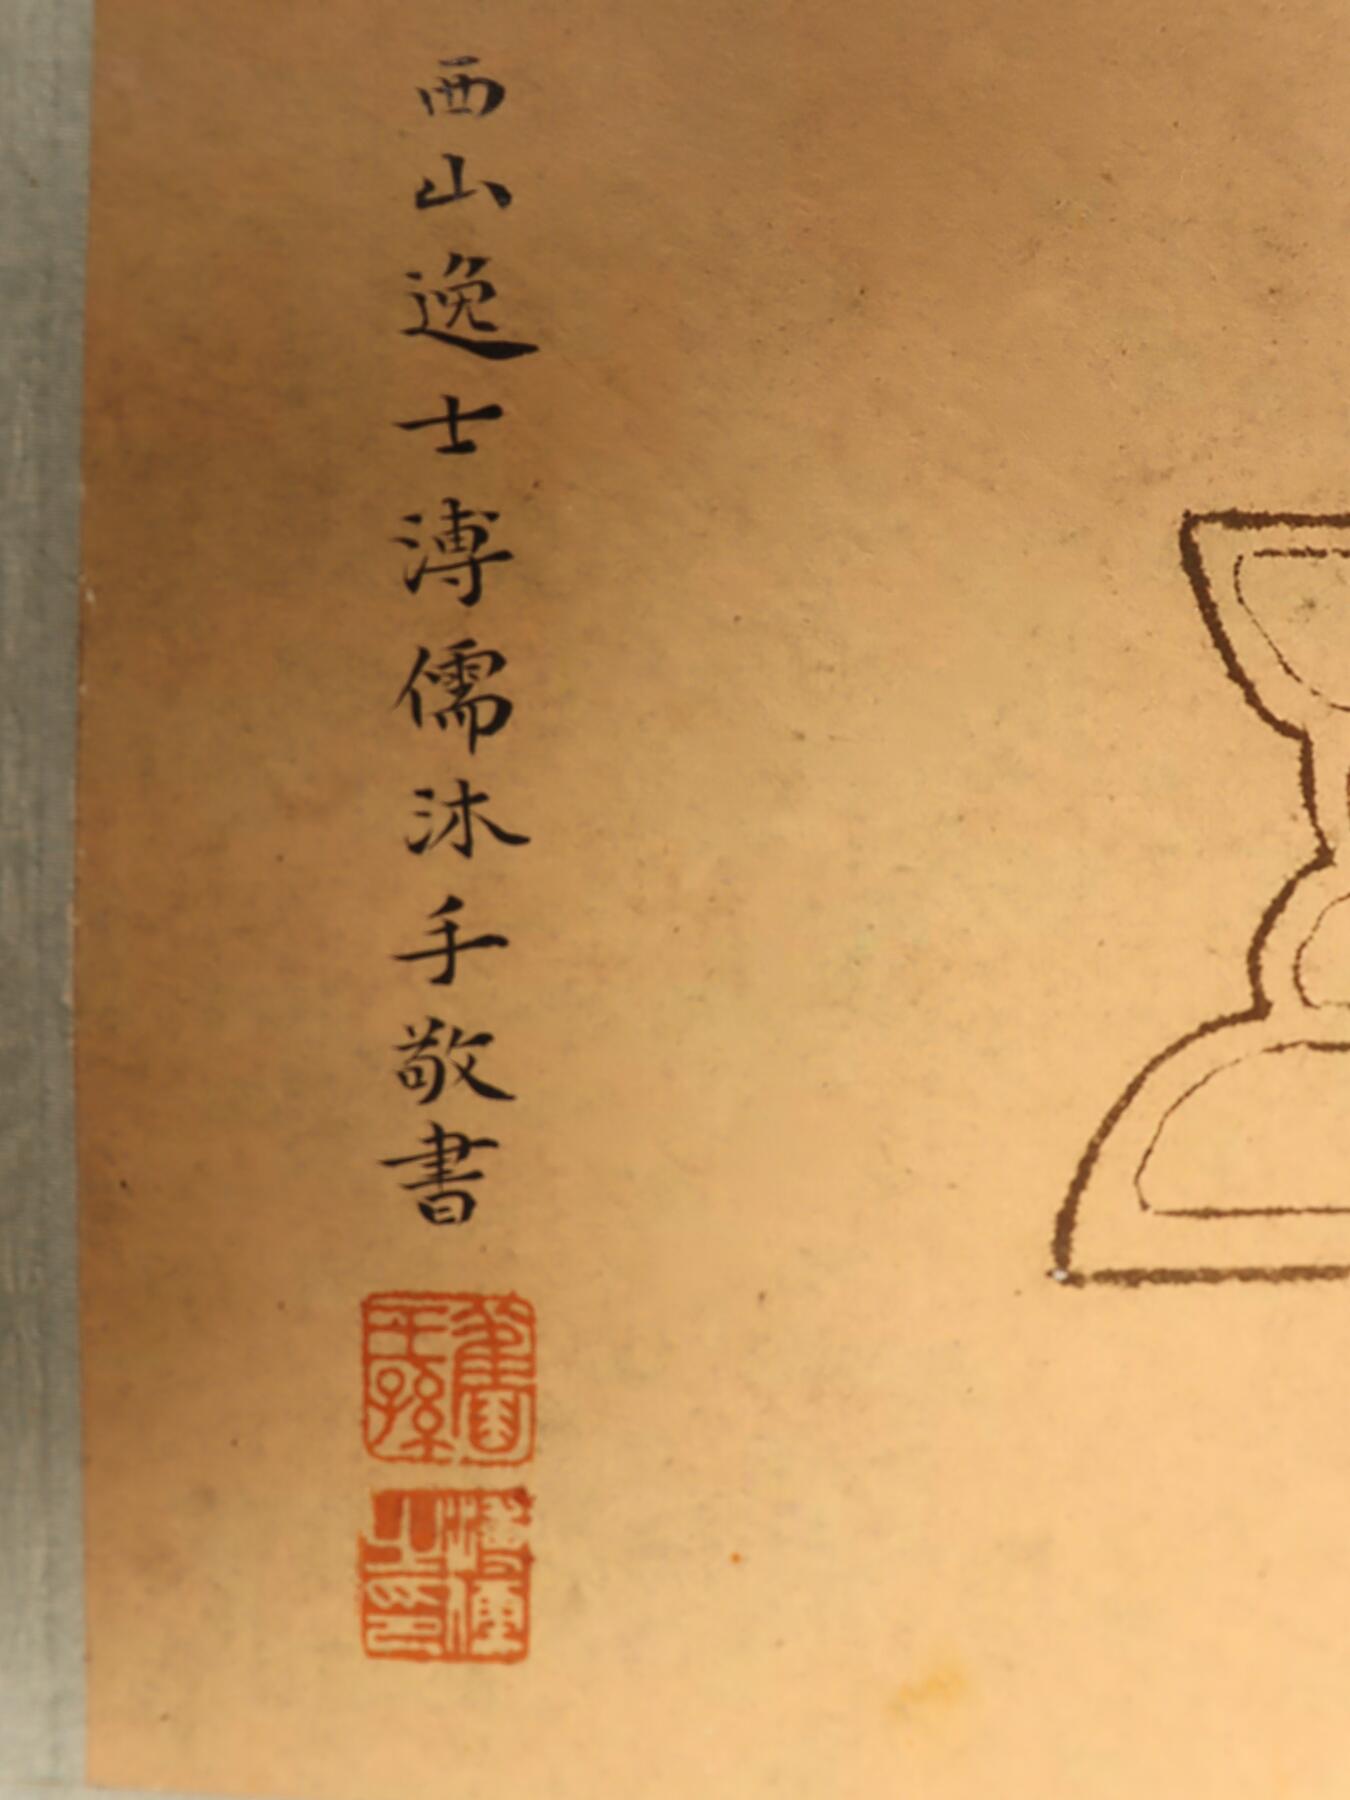 西山逸士溥儒沐手敬書
舊王孫
溥儒之印